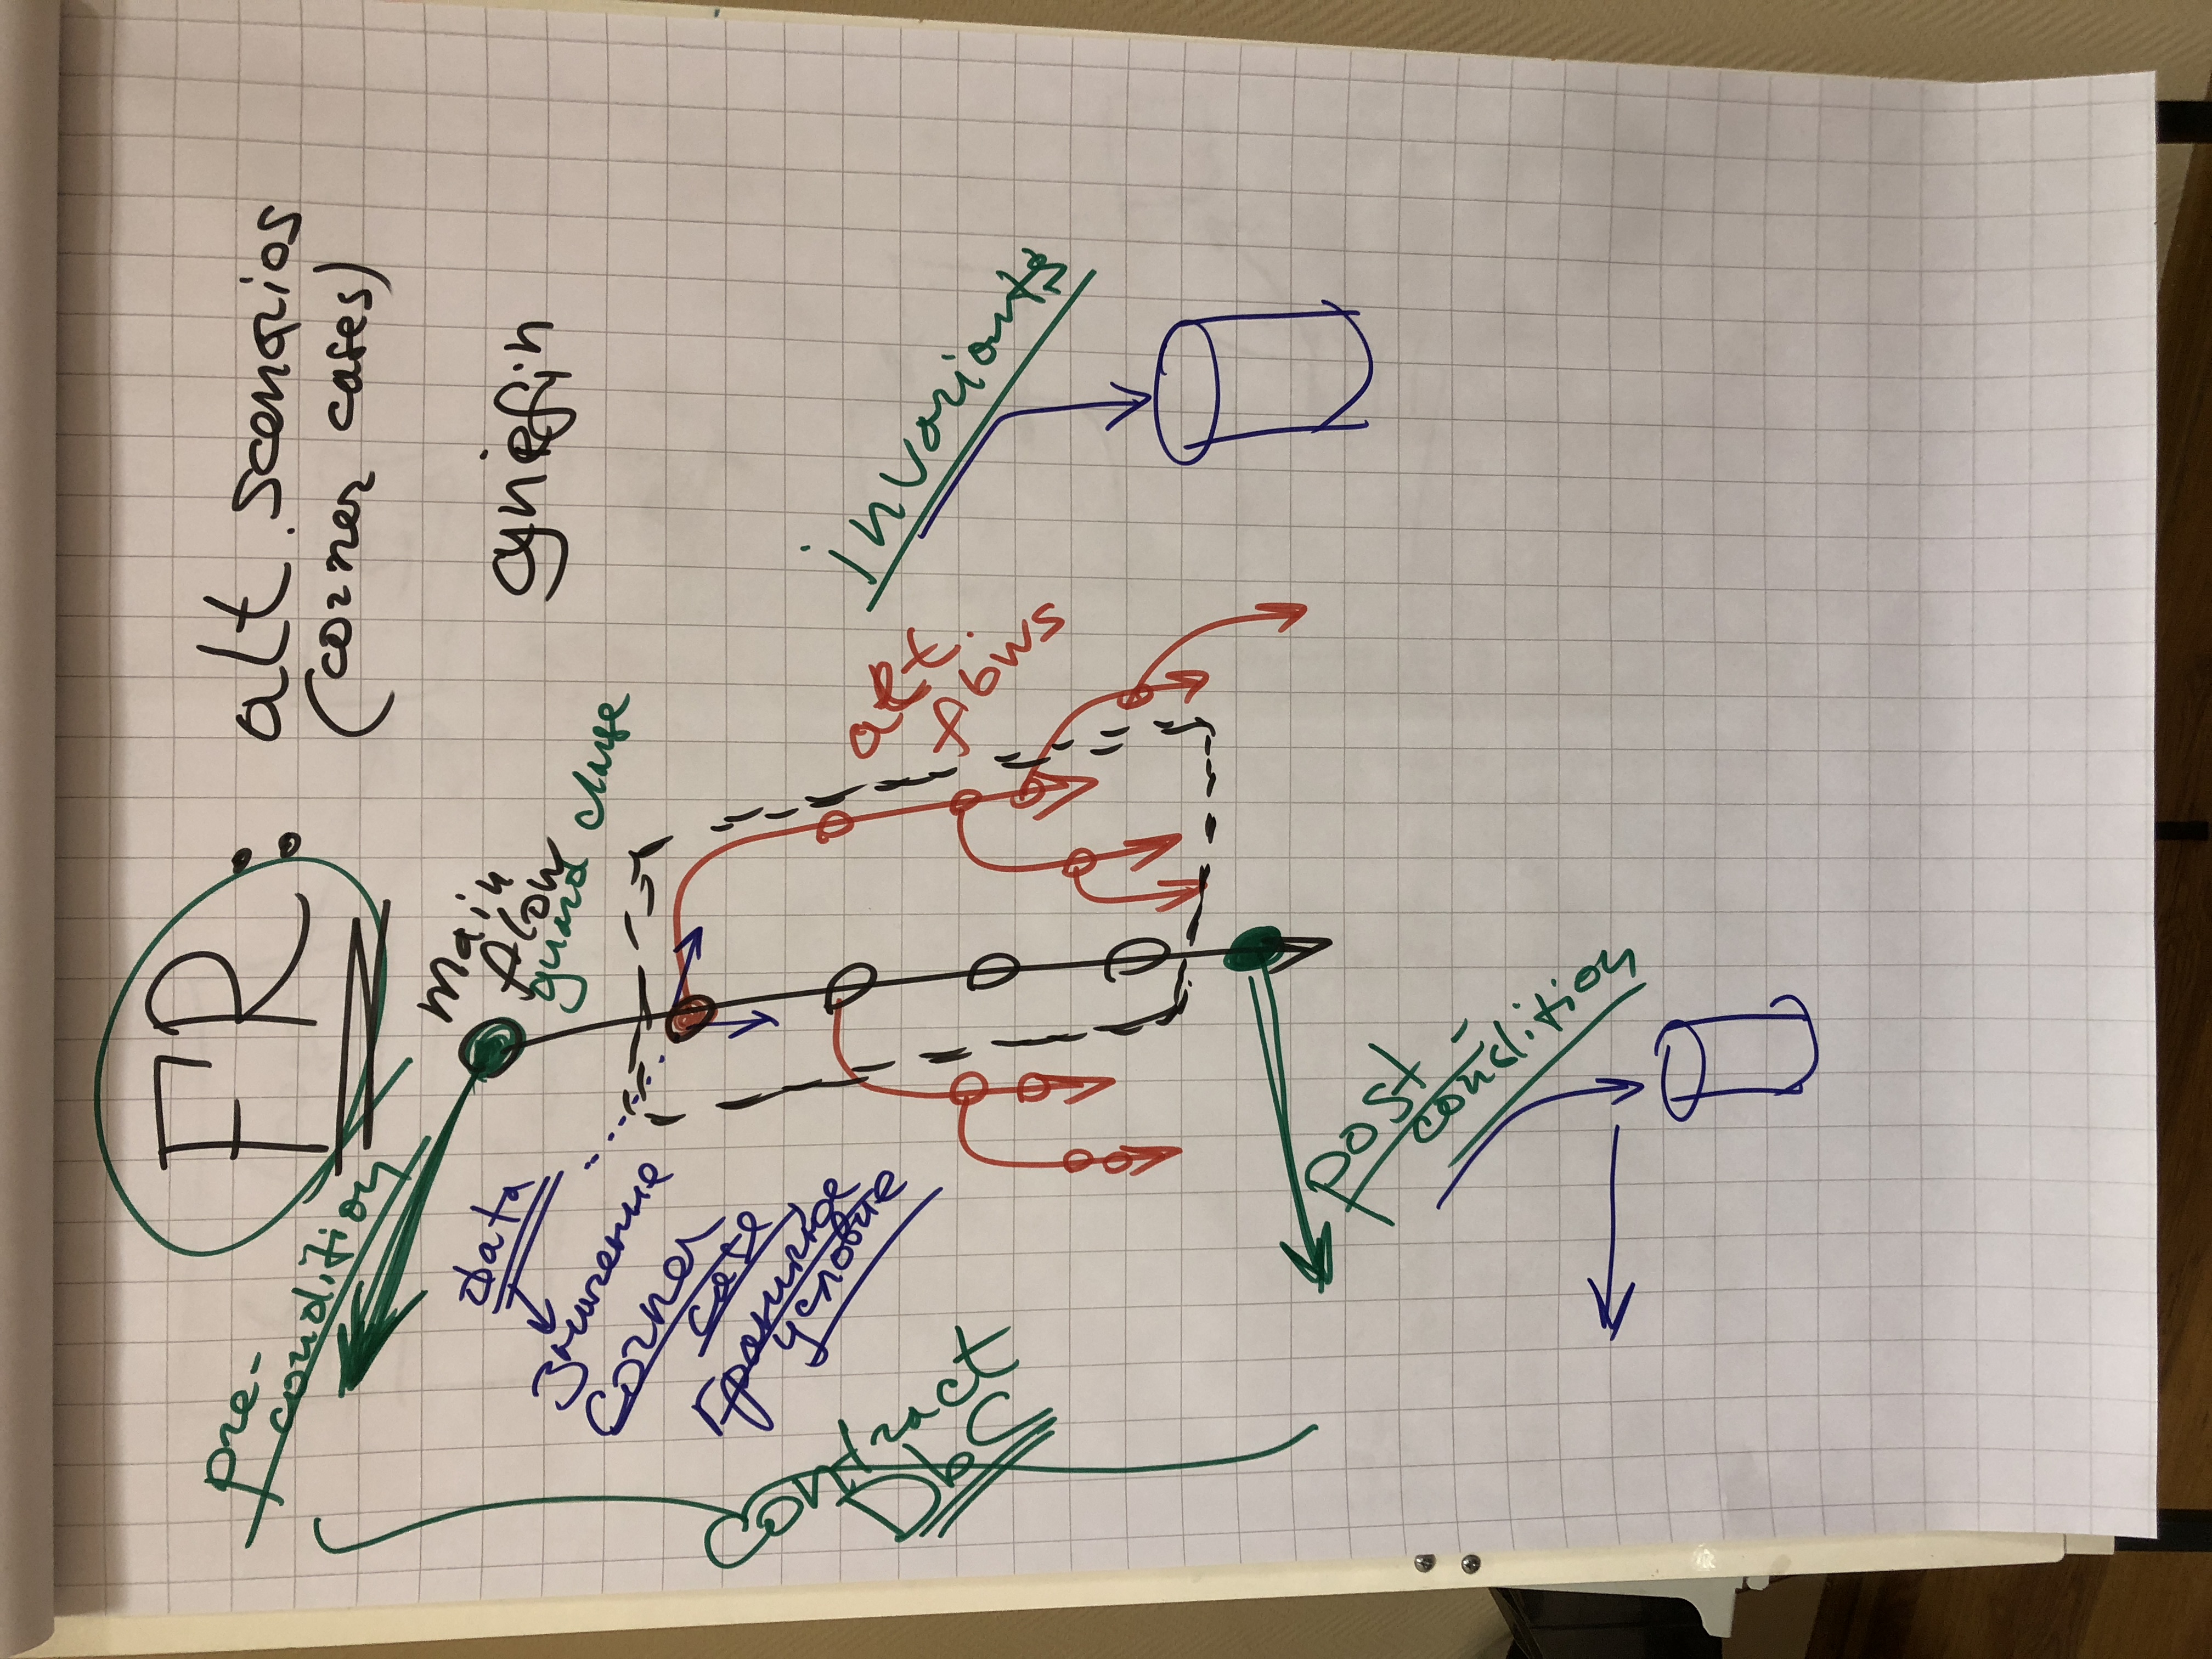 FR:
alt. scenarios
(corner cases)
pre-
condition
main
flow
guard clause
cynefin
data
Значение
Corner
case
Граничное
условие
Contract
DbC
alt
flows
invariants
post-
condition